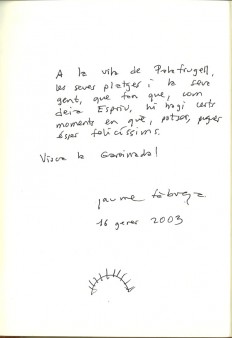 A la vila de Palafrugell,
les seves platges i la seva
gent, que fan que, com
deia Espriu, hi hagi certs
moments en què, potser, pugui
ésser felicíssims.
Visca la Garoinada!
Jaume Fàbrega
16 gener 2003